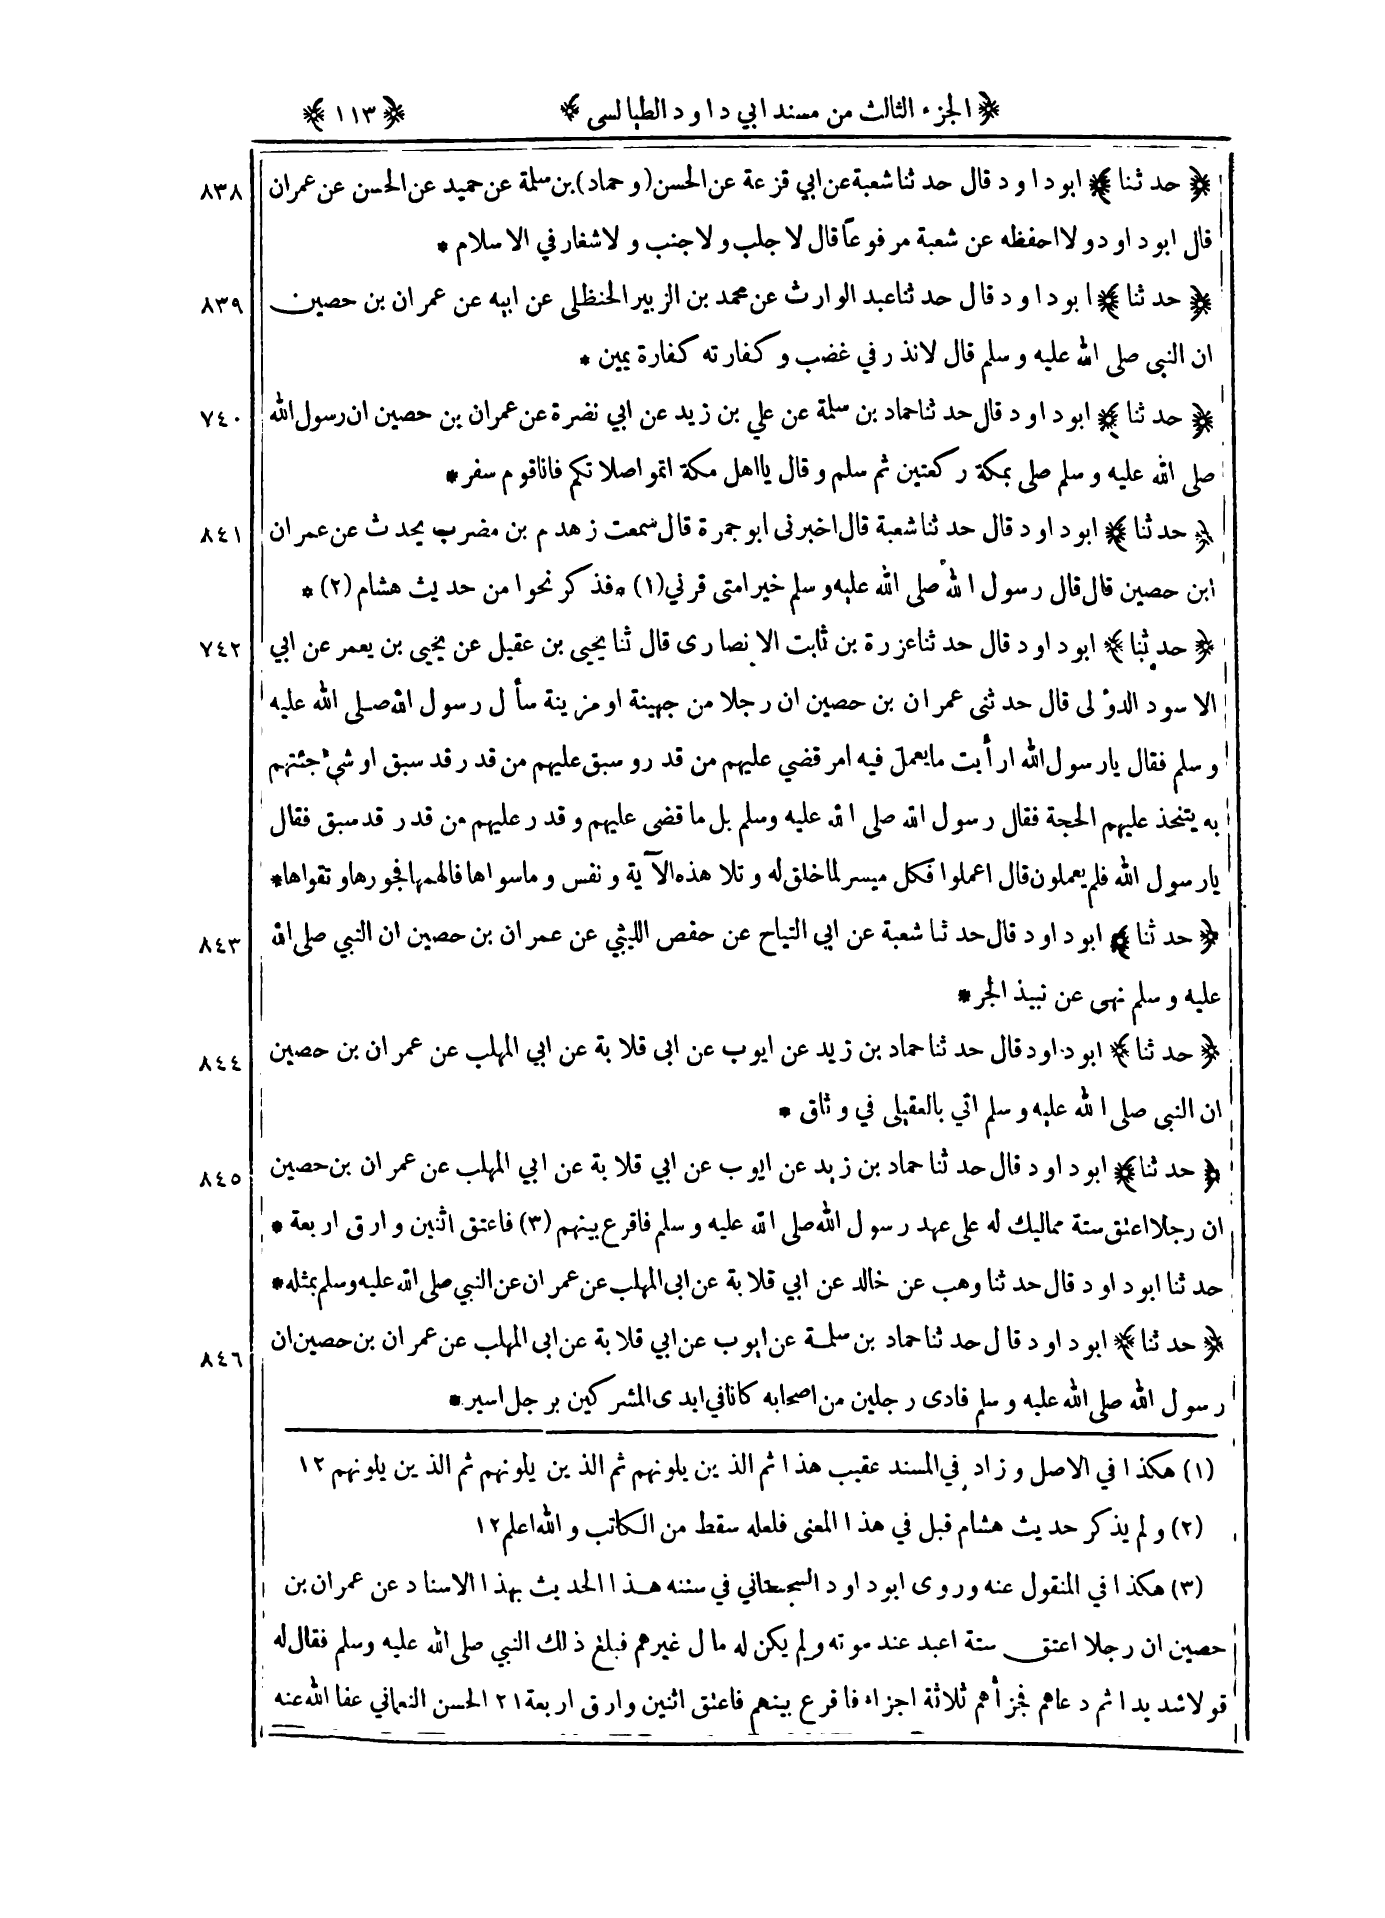 ﴿ الجزء الثالث من مسند ابي داود الطيالسى ﴾ ﴿ ١١٣ ﴾
﴿ حدثنا ﴾ ابوداود قال حدثنا شعبة عن ابي قزعة عن الحسن (وحماد) بن سلمة عن حميد عن الحسن عن عمران ٨٣٨
قال ابوداود ولا احفظه عن شعبة مرفوعاً قال لا جلب ولا جنب ولا شغار في الاسلام *
﴿ حدثنا ﴾ ابوداود قال حدثنا عبد الوارث عن محمد بن الزبير الحنظلى عن ابيه عن عمران بن حصين ٨٣٩
ان النبى صلى الله عليه وسلم قال لا نذر في غضب وكفارته كفارة يمين *
﴿ حدثنا ﴾ ابوداود قال حدثنا حماد بن سلمة عن علي بن زيد عن ابي نضرة عن عمران بن حصين ان رسول الله ٧٤٠
صلى الله عليه وسلم صلى بمكة ركعتين ثم سلم وقال يا اهل مكة اتموا صلاتكم فانا قوم سفر *
﴿ حدثنا ﴾ ابوداود قال حدثنا شعبة قال اخبرنى ابو جمرة قال سمعت زهدم بن مضرب يحدث عن عمران ٨٤١
ابن حصين قال قال رسول الله صلى الله عليه وسلم خير امتى قرني (١) * فذكر نحوا من حديث هشام (٢) *
﴿ حدثنا ﴾ ابوداود قال حدثنا عزرة بن ثابت الانصارى قال ثنا يحيى بن عقيل عن يحيى بن يعمر عن ابي ٧٤٢
الاسود الدؤلى قال حدثنى عمران بن حصين ان رجلا من جهينة او مزينة سأل رسول الله صلى الله عليه
وسلم فقال يا رسول الله ارأيت ما يعمل فيه امر قضي عليهم من قدر وسبق عليهم من قدر قد سبق او شئ جئتهم
به يتخذ عليهم الحجة فقال رسول الله صلى الله عليه وسلم بل ما قضى عليهم وقدر عليهم من قدر قد سبق فقال
يا رسول الله فلم يعملون قال اعملوا فكل ميسر لما خلق له وتلا هذه الآية ونفس وما سواها فالهمها فجورها وتقواها *
﴿ حدثنا ﴾ ابوداود قال حدثنا شعبة عن ابي التياح عن حفص الليثي عن عمران بن حصين ان النبي صلى الله ٨٤٣
عليه وسلم نهى عن نبيذ الجر *
﴿ حدثنا ﴾ ابوداود قال حدثنا حماد بن زيد عن ايوب عن ابى قلابة عن ابي المهلب عن عمران بن حصين ٨٤٤
ان النبى صلى الله عليه وسلم اتي بالعقيلى في وثاق *
﴿ حدثنا ﴾ ابوداود قال حدثنا حماد بن زيد عن ايوب عن ابي قلابة عن ابي المهلب عن عمران بن حصين ٨٤٥
ان رجلا اعتق ستة مماليك له على عهد رسول الله صلى الله عليه وسلم فاقرع بينهم (٣) فاعتق اثنين وارق اربعة *
حدثنا ابوداود قال حدثنا وهب عن خالد عن ابي قلابة عن ابى المهلب عن عمران عن النبي صلى الله عليه وسلم بمثله *
﴿ حدثنا ﴾ ابوداود قال حدثنا حماد بن سلمة عن ايوب عن ابي قلابة عن ابى المهلب عن عمران بن حصين ان ٨٤٦
رسول الله صلى الله عليه وسلم فادى رجلين من اصحابه كانا في ايدى المشركين برجل اسير *
(١) هكذا في الاصل وزاد في المسند عقيب هذا ثم الذين يلونهم ثم الذين يلونهم ثم الذين يلونهم ١٢
(٢) ولم يذكر حديث هشام قبل في هذا المعنى فلعله سقط من الكاتب والله اعلم ١٢
(٣) هكذا في المنقول عنه وروى ابوداود السجستاني في سننه هذا الحديث بهذا الاسناد عن عمران بن
حصين ان رجلا اعتق ستة اعبد عند موته ولم يكن له مال غيرهم فبلغ ذلك النبي صلى الله عليه وسلم فقال له
قولا شديدا ثم دعاهم فجزأهم ثلاثة اجزاء فاقرع بينهم فاعتق اثنين وارق اربعة ٢١ الحسن النعماني عفا الله عنه